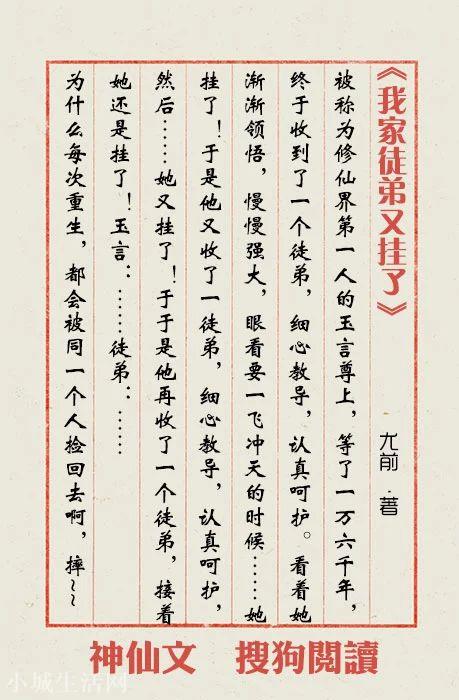 《我家徒弟又挂了》
尤前·著
被称为修仙界第一人的玉言尊上，等了一万六千年，
终于收到了一个徒弟，细心教导，认真呵护。看着她
渐渐领悟，慢慢强大，眼看要一飞冲天的时候……她
挂了！于是他又收了一徒弟，细心教导，认真呵护，
然后……她又挂了！于于是他再收了一个徒弟，接着
她还是挂了！玉言：……徒弟：……
为什么每次重生，都会被同一个人捡回去啊，摔~~
神仙文 搜狗閱讀
小城生活网